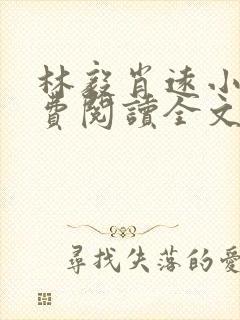 林毅肖遠小
費閱讀全文
尋找失落的愛